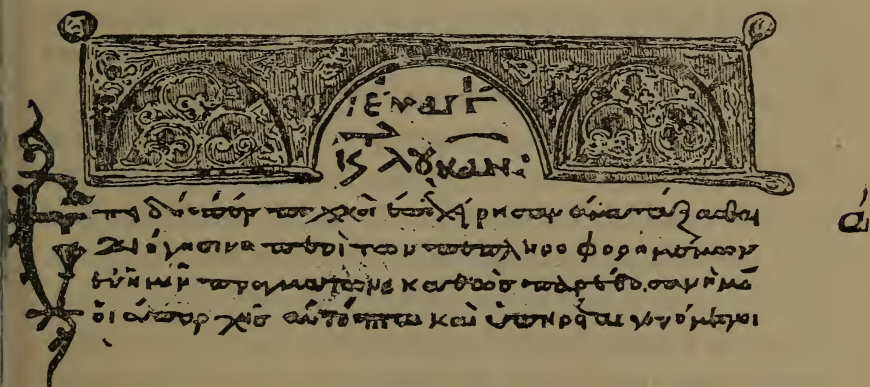 εὐαγγ
κτ λουκαν:
Ἐπειδήπερ πολλοὶ ἐπεχείρησαν ἀνατάξασθαι
διήγησιν περὶ τῶν πεπληροφορημένων
ἐν ἡμῖν πραγμάτων, καθὼς παρέδοσαν ἡμῖ
οἱ ἀπ' ἀρχῆς αὐτόπται καὶ ὑπηρέται γενόμενοι
ά